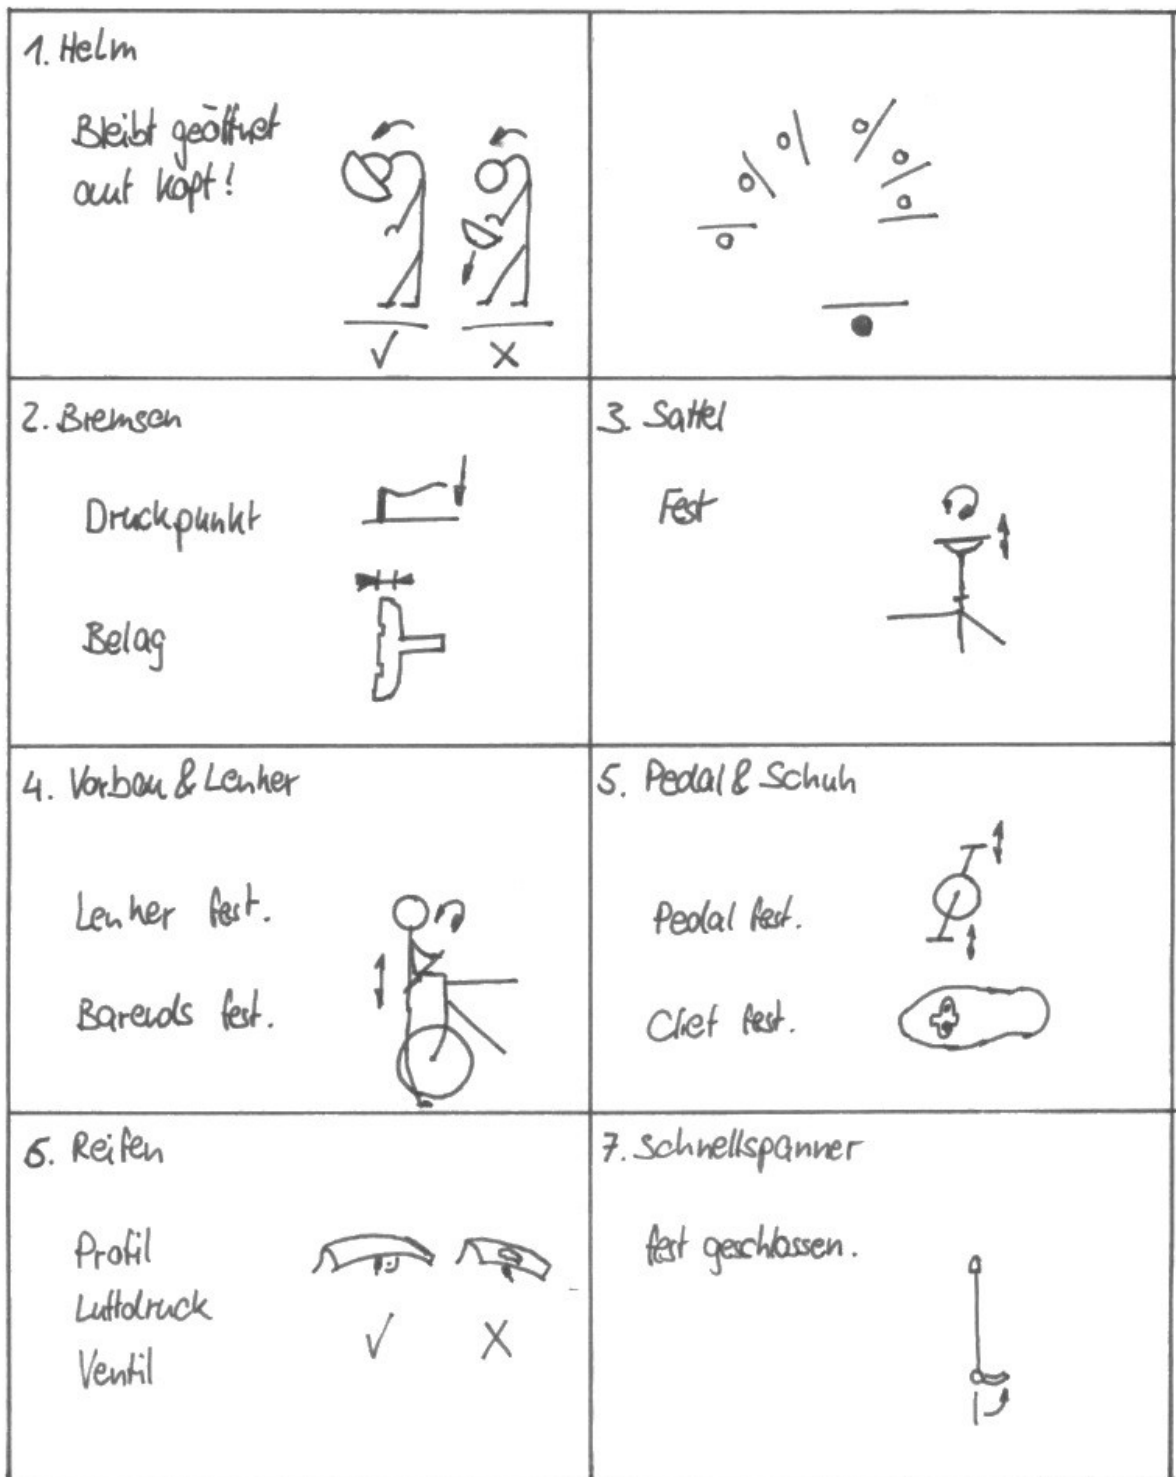 1. Helm
Bleibt geöffnet
auf Kopf!
2. Bremsen
Druckpunkt
Belag
3. Sattel
Fest
4. Vorbau & Lenker
Lenker fest.
Barends fest.
5. Pedal & Schuh
Pedal fest.
Cliet fest.
6. Reifen
Profil
Luftdruck
Ventil
7. Schnellspanner
fest geschlossen.